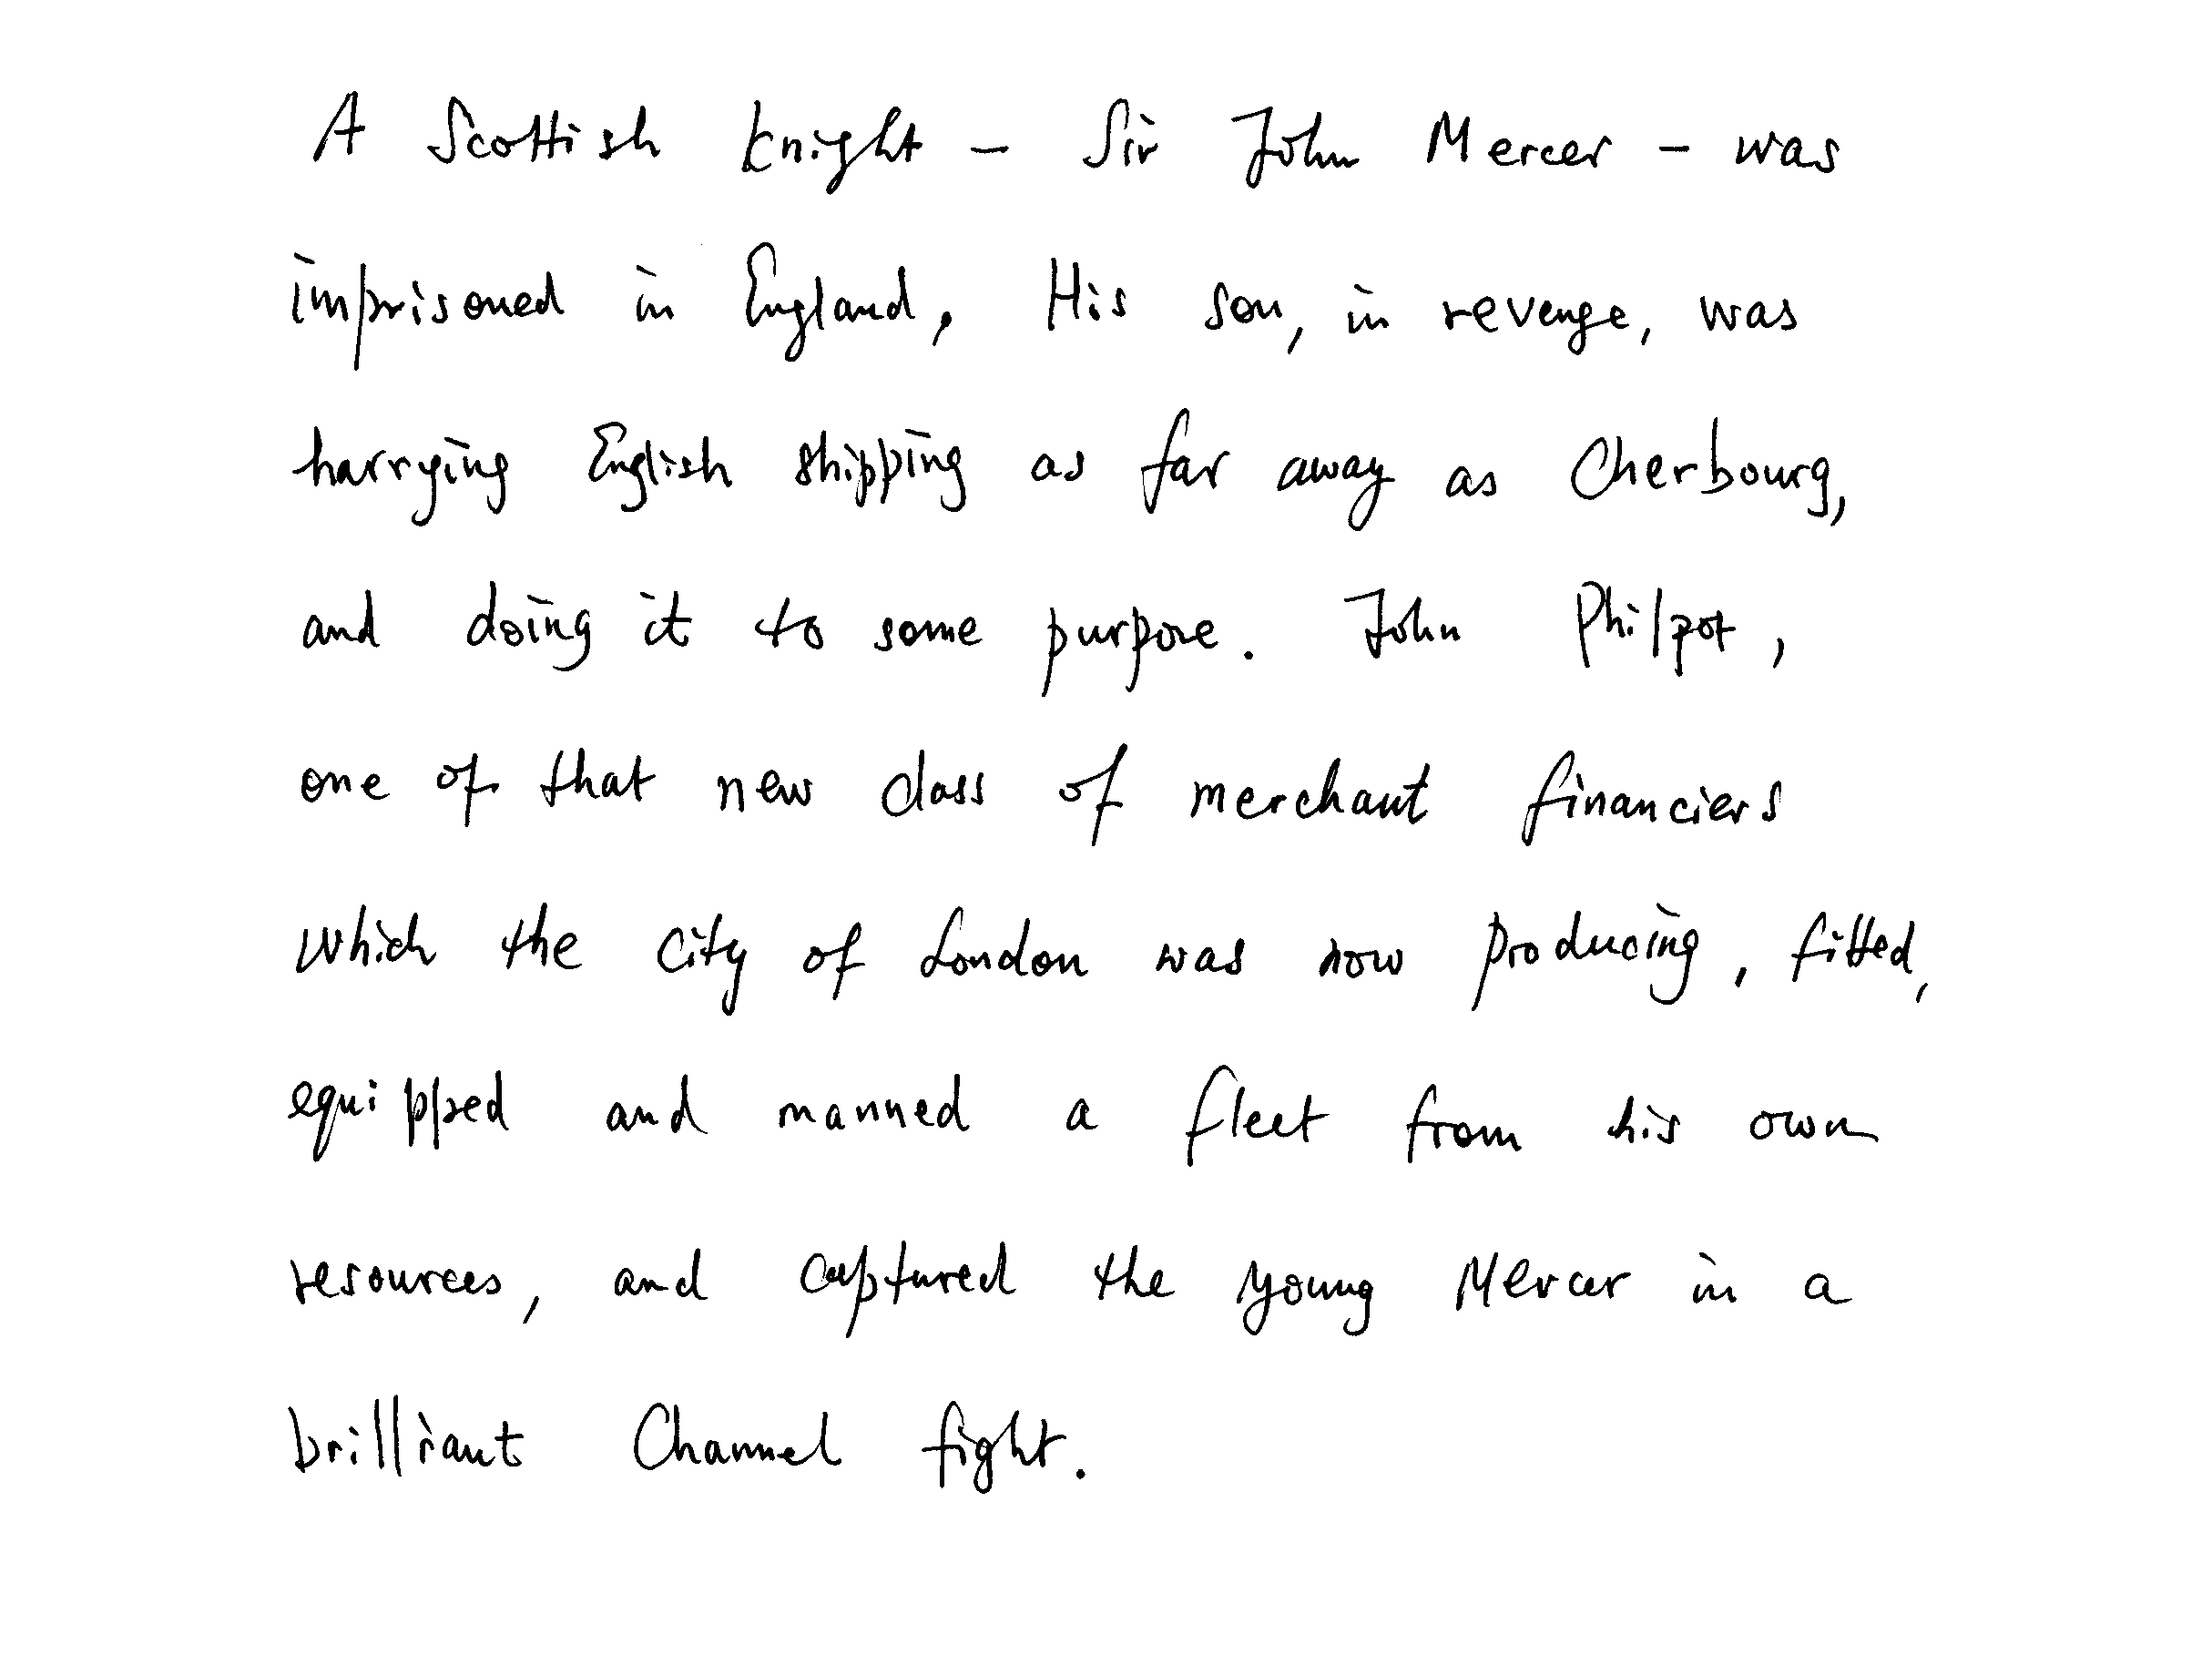 A Scottish knight - Sir John Mercer - was
imprisoned in England, His son, in revenge, was
harrying English shipping as far away as Cherbourg,
and doing it to some purpose. John Philpot,
one of that new class of merchant financiers
which the city of London was now producing, fitted,
equipped and manned a fleet from his own
resources, and captured the young Mercer in a
brilliant Channel fight.